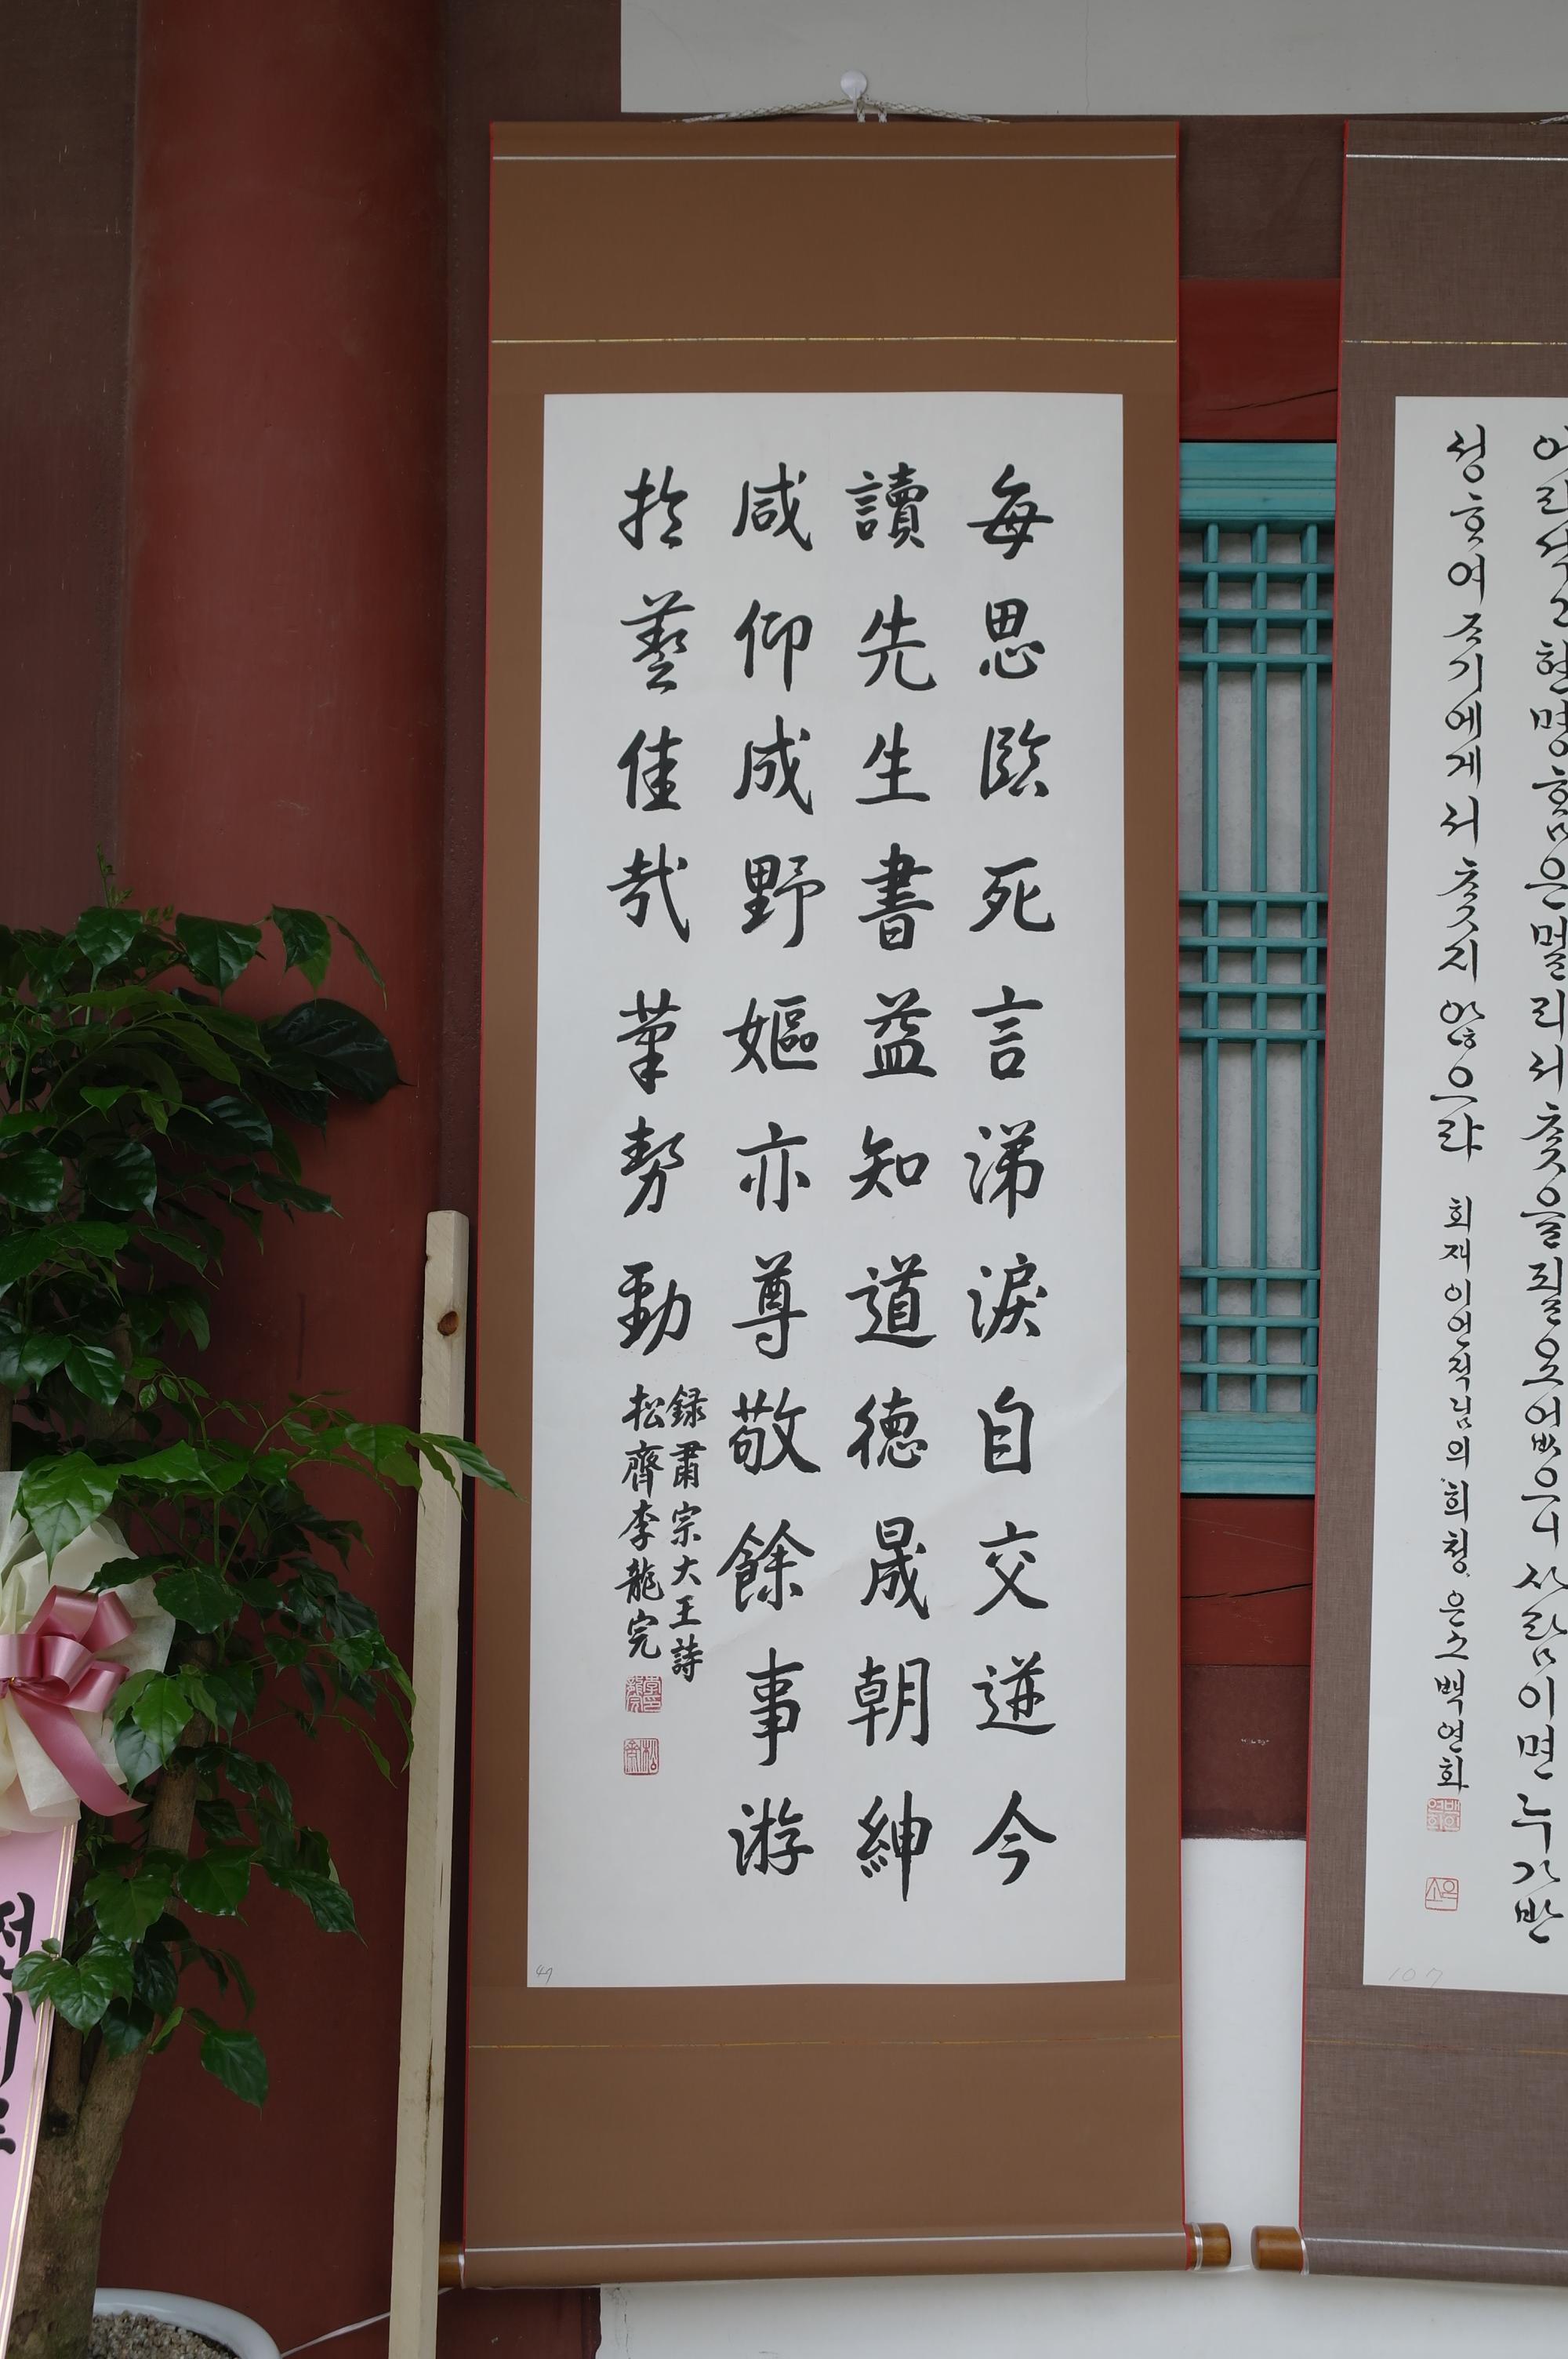 어리석고현명함은멀리서찾을필요없으니사람이면누가반
성하여자기에게서찾지않으랴 회재이언적님의희청 은소백연화
107
每思臨死言涕淚自交迸今
讀先生書益知道德晟朝紳
咸仰成野嫗亦尊敬餘事游
扵藝佳哉筆勢勁
録肅宗大王詩
松齋李龍完
47